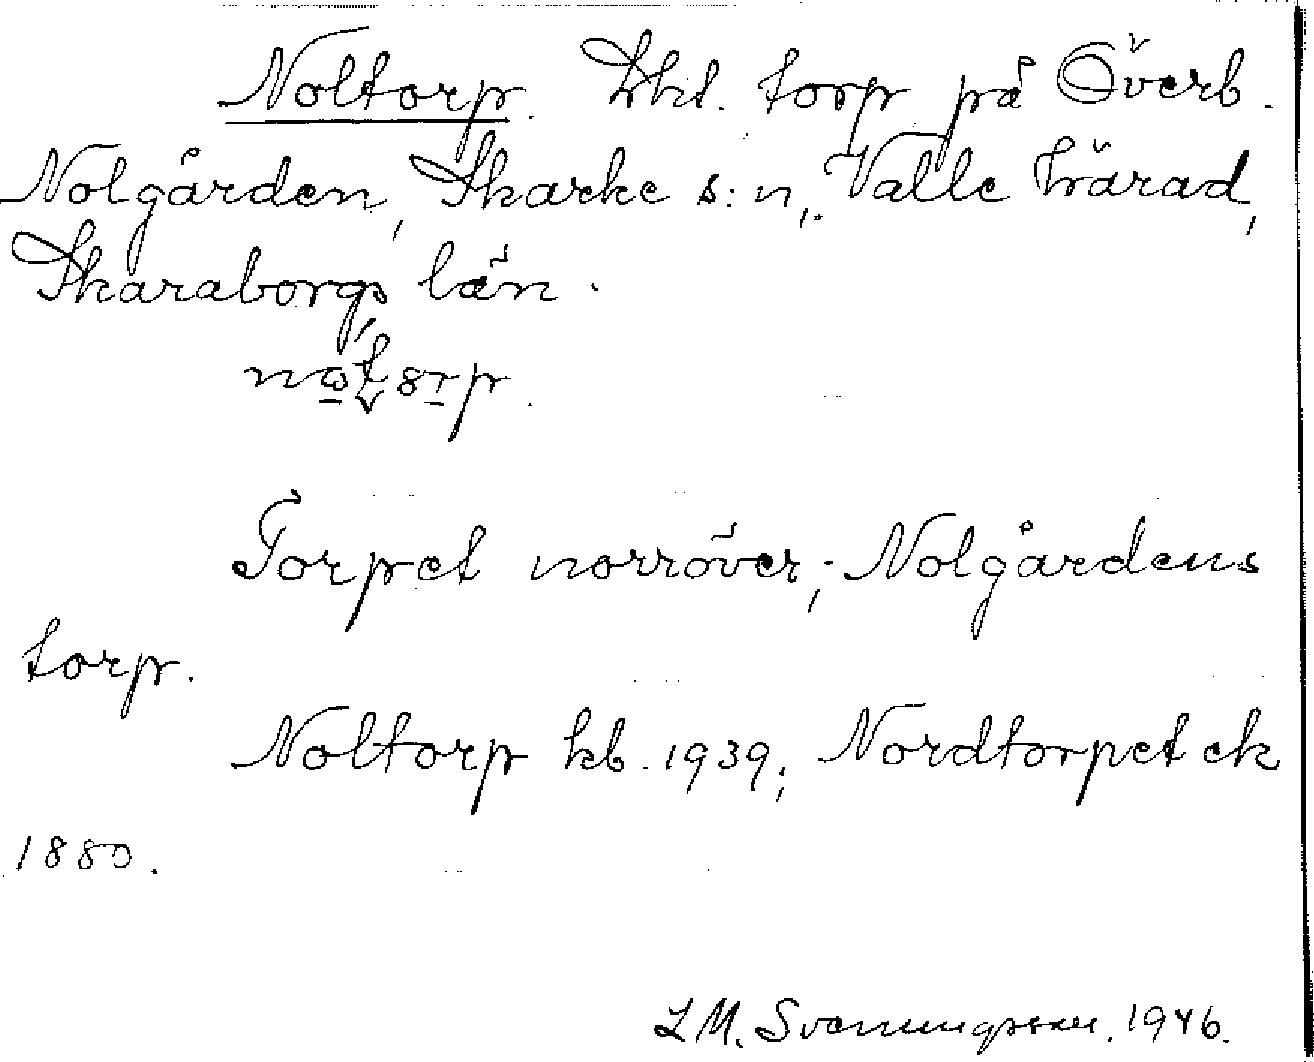 Noltorp. Lht. torp på Överb.
Nolgården, Skarke s:n, Valle härad,
Skaraborgs län.
Torpet norröver; Nolgårdens
torp.
Noltorp kb. 1939; Nordtorpet ek
1880.
L M. Svenungsson. 1946.